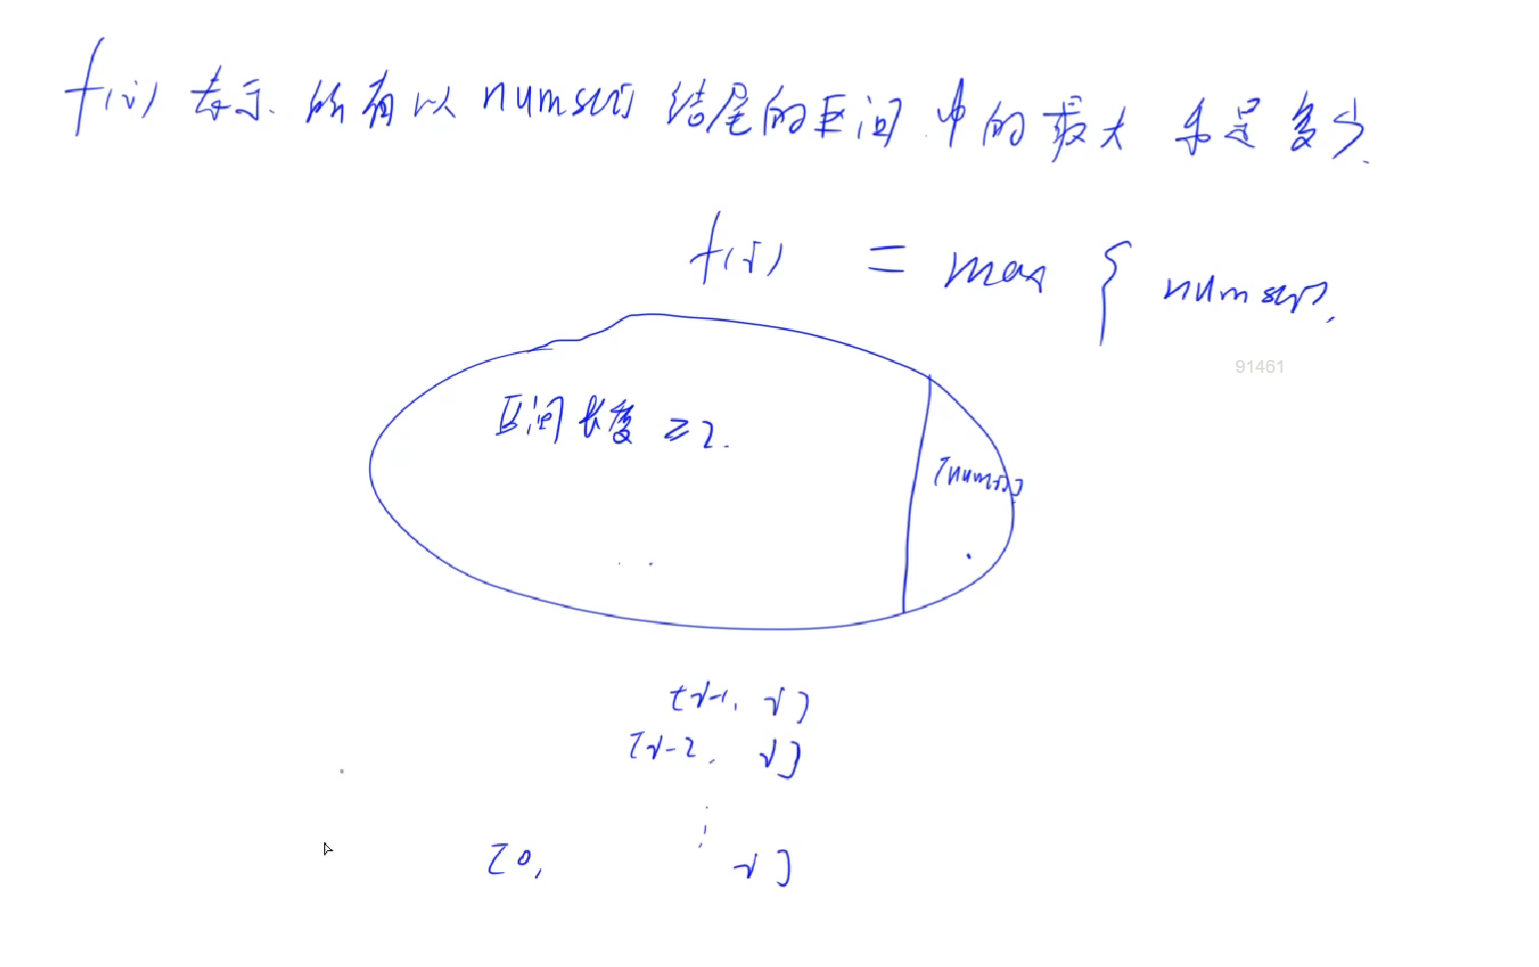 f(i) 表示 所有以 nums[i] 结尾的区间中的最大 和是多少.
f(i) = max { nums[i],
91461
区间长度 ≥2.
[nums[i]]
[i-1, i]
[i-2, i]
⋮
[0, i]